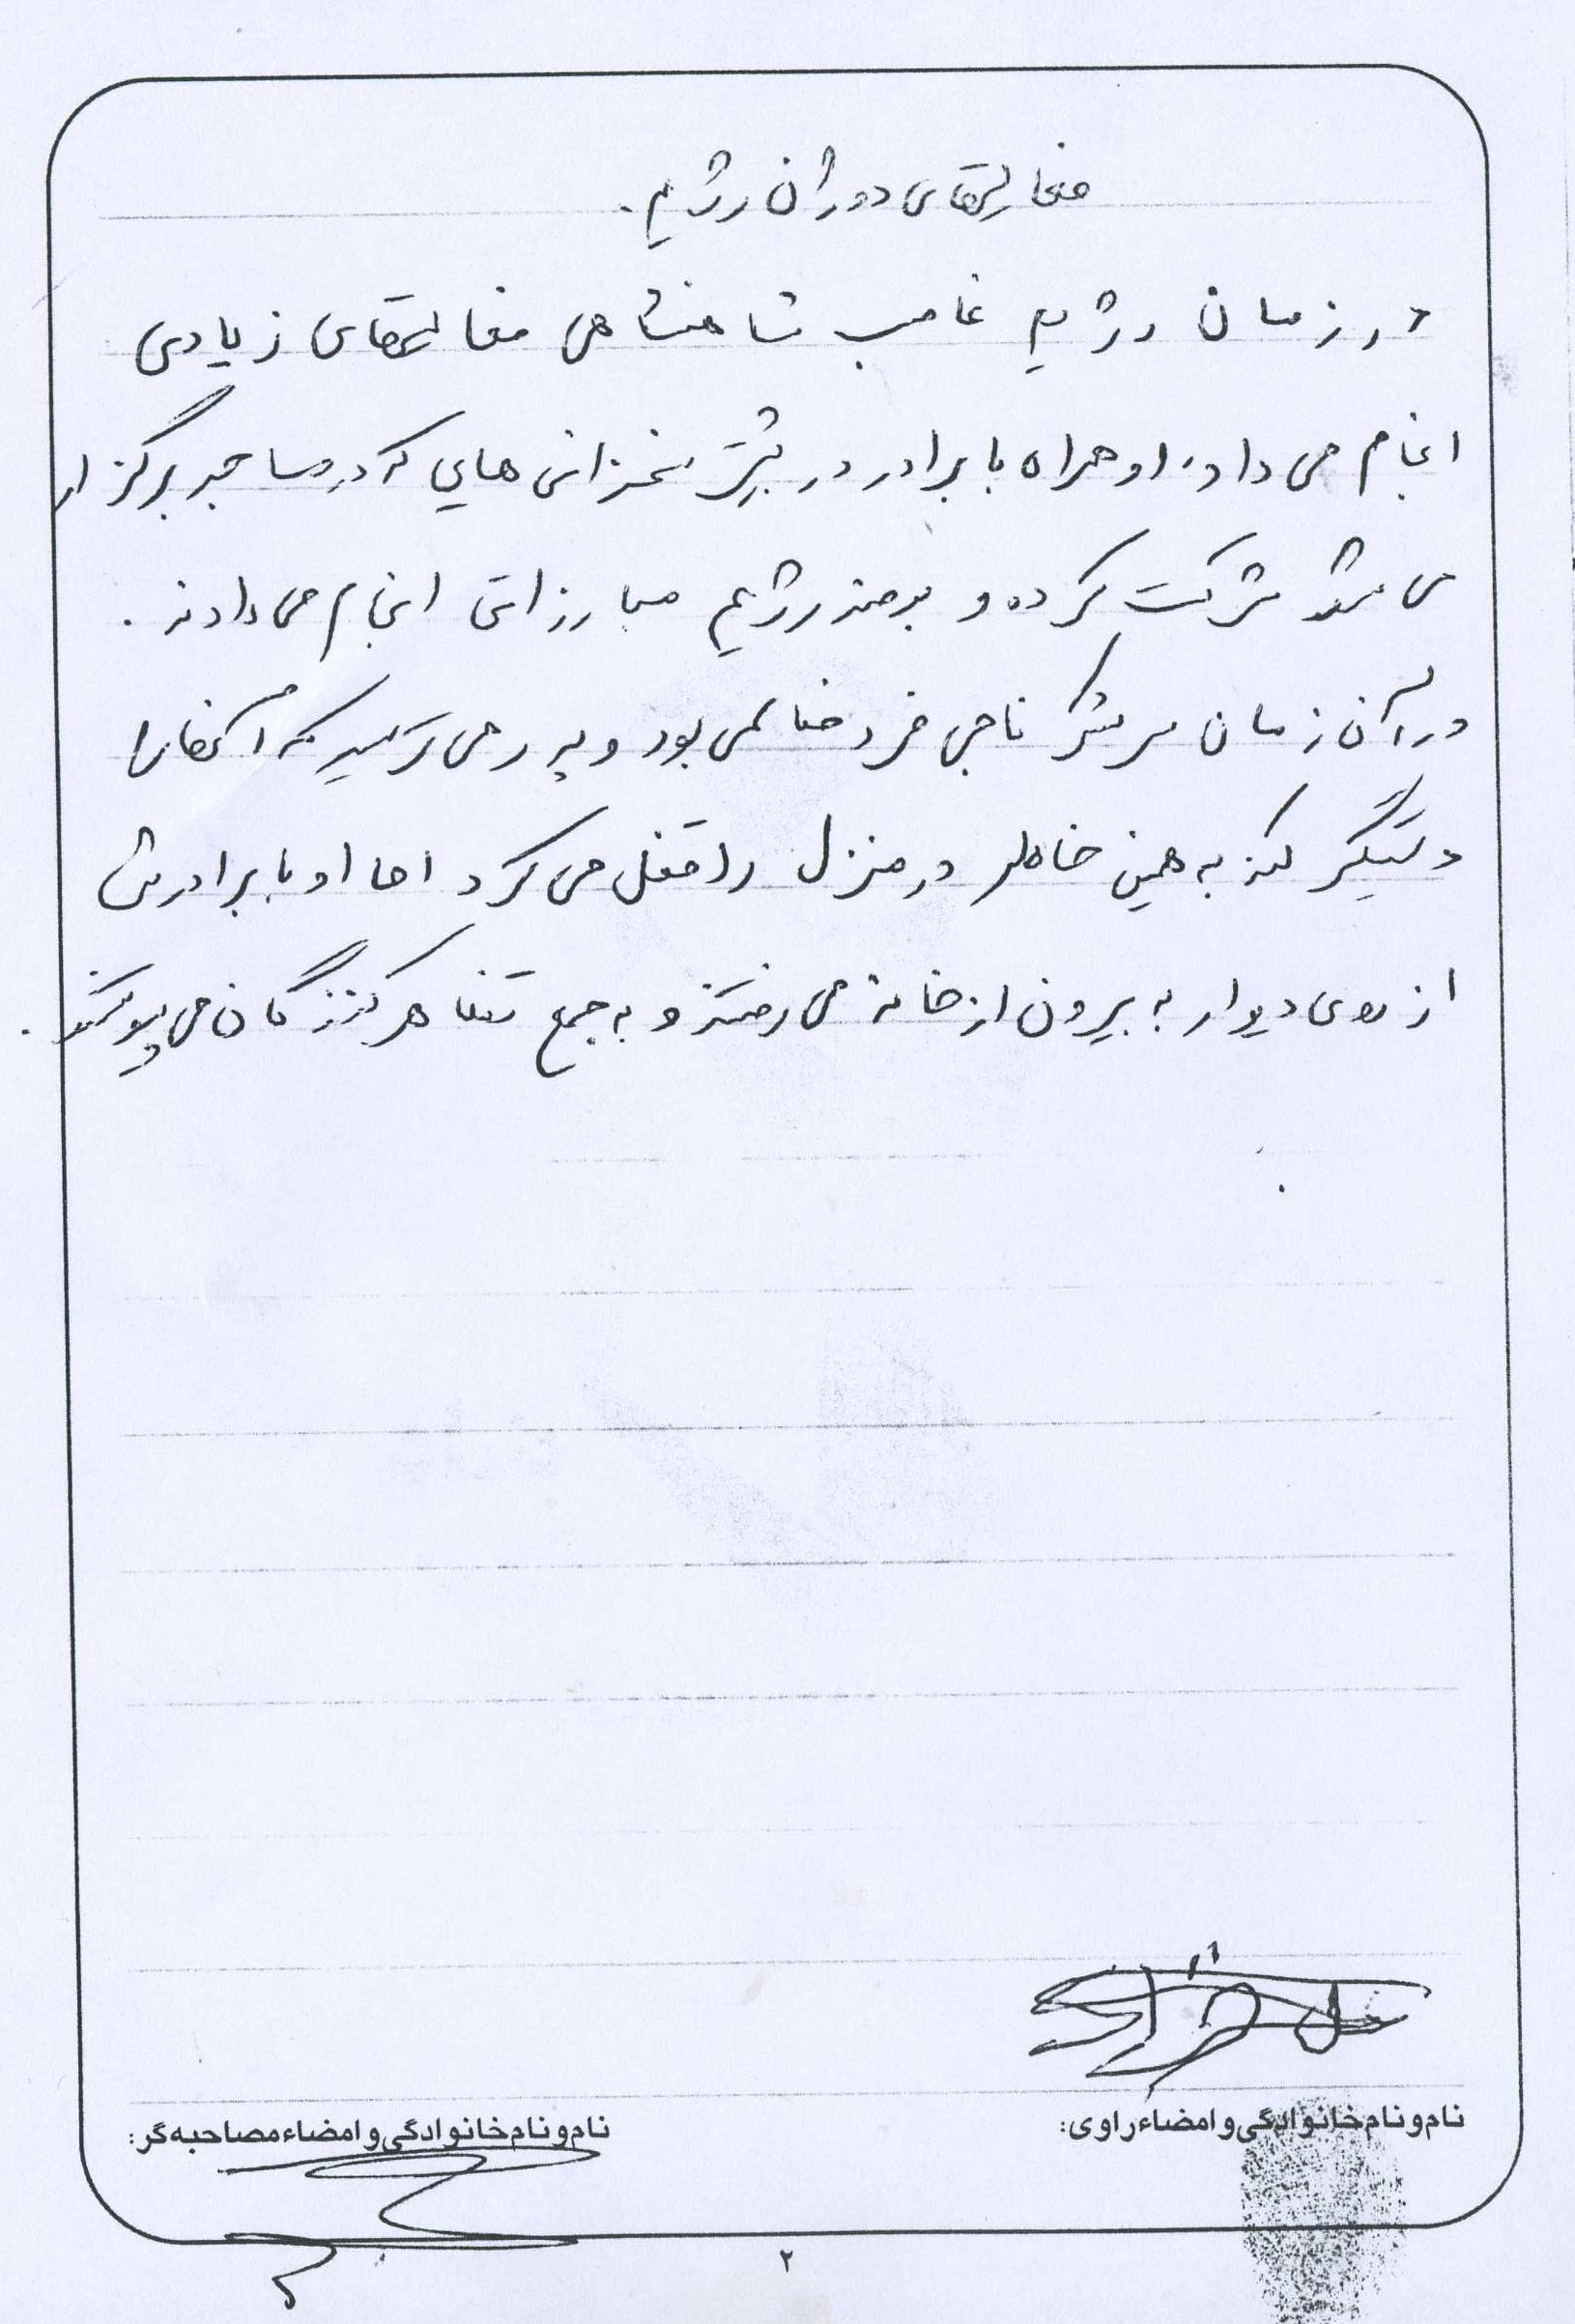 فعالیتهای دوران رژیم.
در زمان رژیم غاصب شاهنشاهی فعالیتهای زیادی
انجام می داد، او همراه با برادر در بیشتر سخنرانی هایی که در مساجد برگزار
می شد شرکت کرده و بر ضد رژیم مبارزاتی انجام می دادند.
در آن زمان سر لشکر ناجی فرد ظالمی بود و پدر می ترسید که آنها را
دستگیر کند به همین خاطر در منزل را قفل می کرد اما او با برادرش
از روی دیوار به بیرون از خانه می رفتند و به جمع تظاهر کنندگان می پیوستند.
نام و نام خانوادگی و امضاء راوی:
نام و نام خانوادگی و امضاء مصاحبه گر:
۲